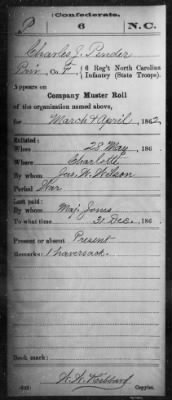 Confederate.
P 6 N.C.
Charles J. Pender
Priv., Co. F, 6 Reg't North Carolina
Infantry (State Troops).
Appears on
Company Muster Roll
of the organization named above,
for March & April, 1862.
Enlisted:
When 28 May, 186 .
Where Charlotte
By whom Jas. W. Wilson
Period War
Last paid:
By whom Maj. Jones
To what time 31 Dec., 186 .
Present or absent Present
Remarks: 1 haversack.
Book mark:
W. W. Hubbard
Copyist.